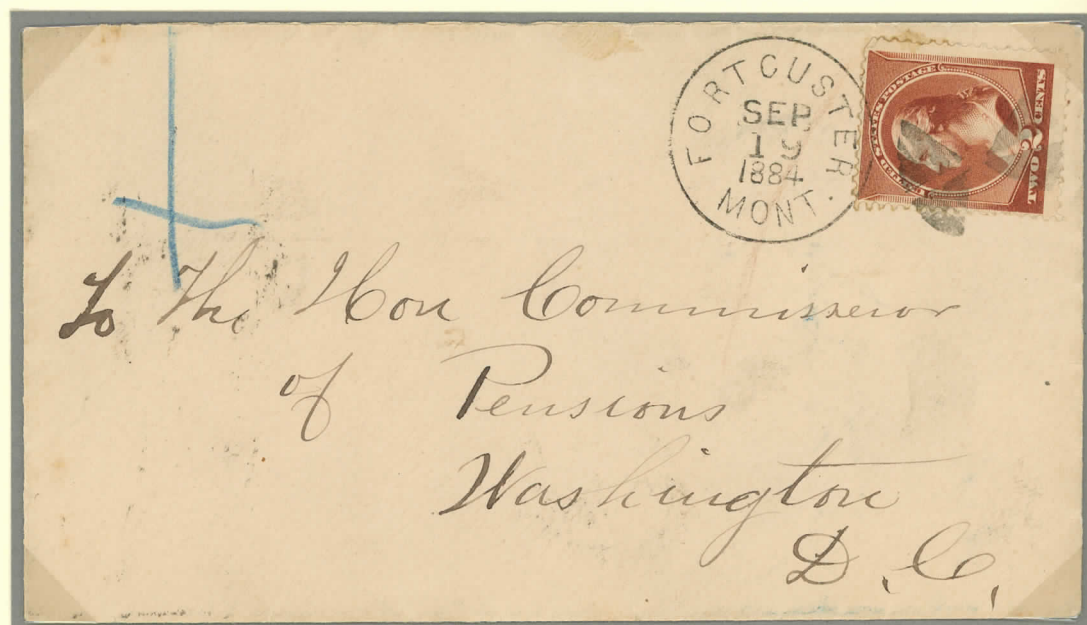 FORT CUSTER
SEP
19
1884
MONT.
UNITED STATES POSTAGE
TWO 2 CENTS
To The Hon Commissieror
of Pensions
Washington
D. C.